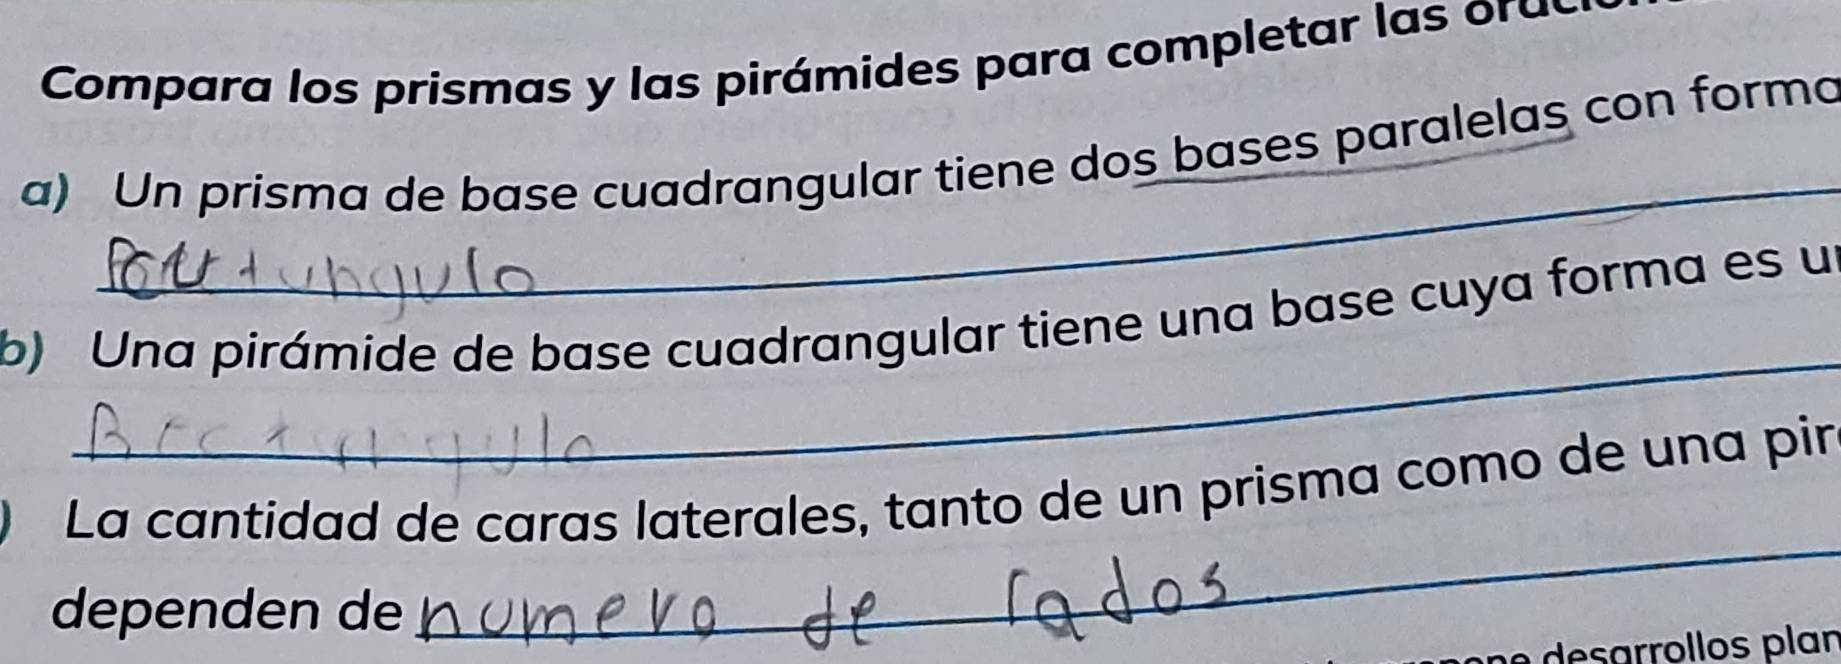 Compara los prismas y las pirámides para completar las
a) Un prisma de base cuadrangular tiene dos bases paralelas con forma
b) Una pirámide de base cuadrangular tiene una base cuya forma es
Rectangulo
) La cantidad de caras laterales, tanto de un prisma como de una
dependen de numero de lados
desarrollos